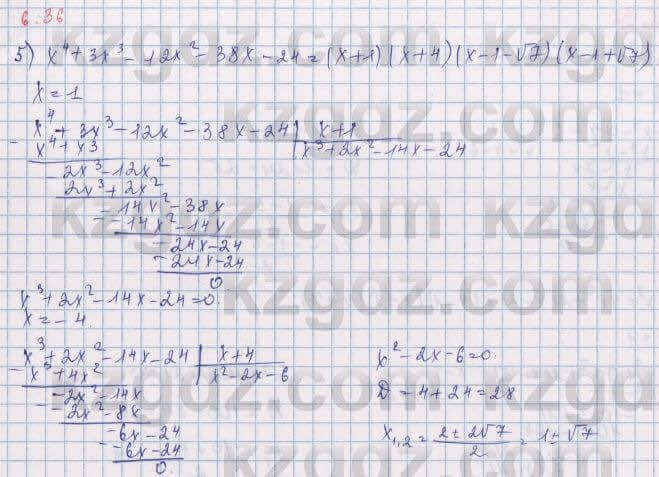 6.36
5) x⁴+3x³-12x²-38x-24=(x+1)(x+4)(x-1-√7)(x-1+√7)
x=1
x⁴+3x³-12x²-38x-24 | x+1
x⁴+x3 | x³+2x²-14x-24
2x³-12x²
2x³+2x²
-14x²-38x
-14x²-14x
-24x-24
-24x-24
0
x³+2x²-14x-24=0.
x=-4.
x³+2x²-14x-24 | x+4
x³+4x² | x²-2x-6
-2x²-14x
-2x²-8x
-6x-24
-6x-24
0
x²-2x-6=0.
D=4+24=28
x₁,₂=(2±2√7)/2=1±√7
kzgdz.com
kzgdz.com
kzgdz.com
kzgdz.com
kzgdz.com